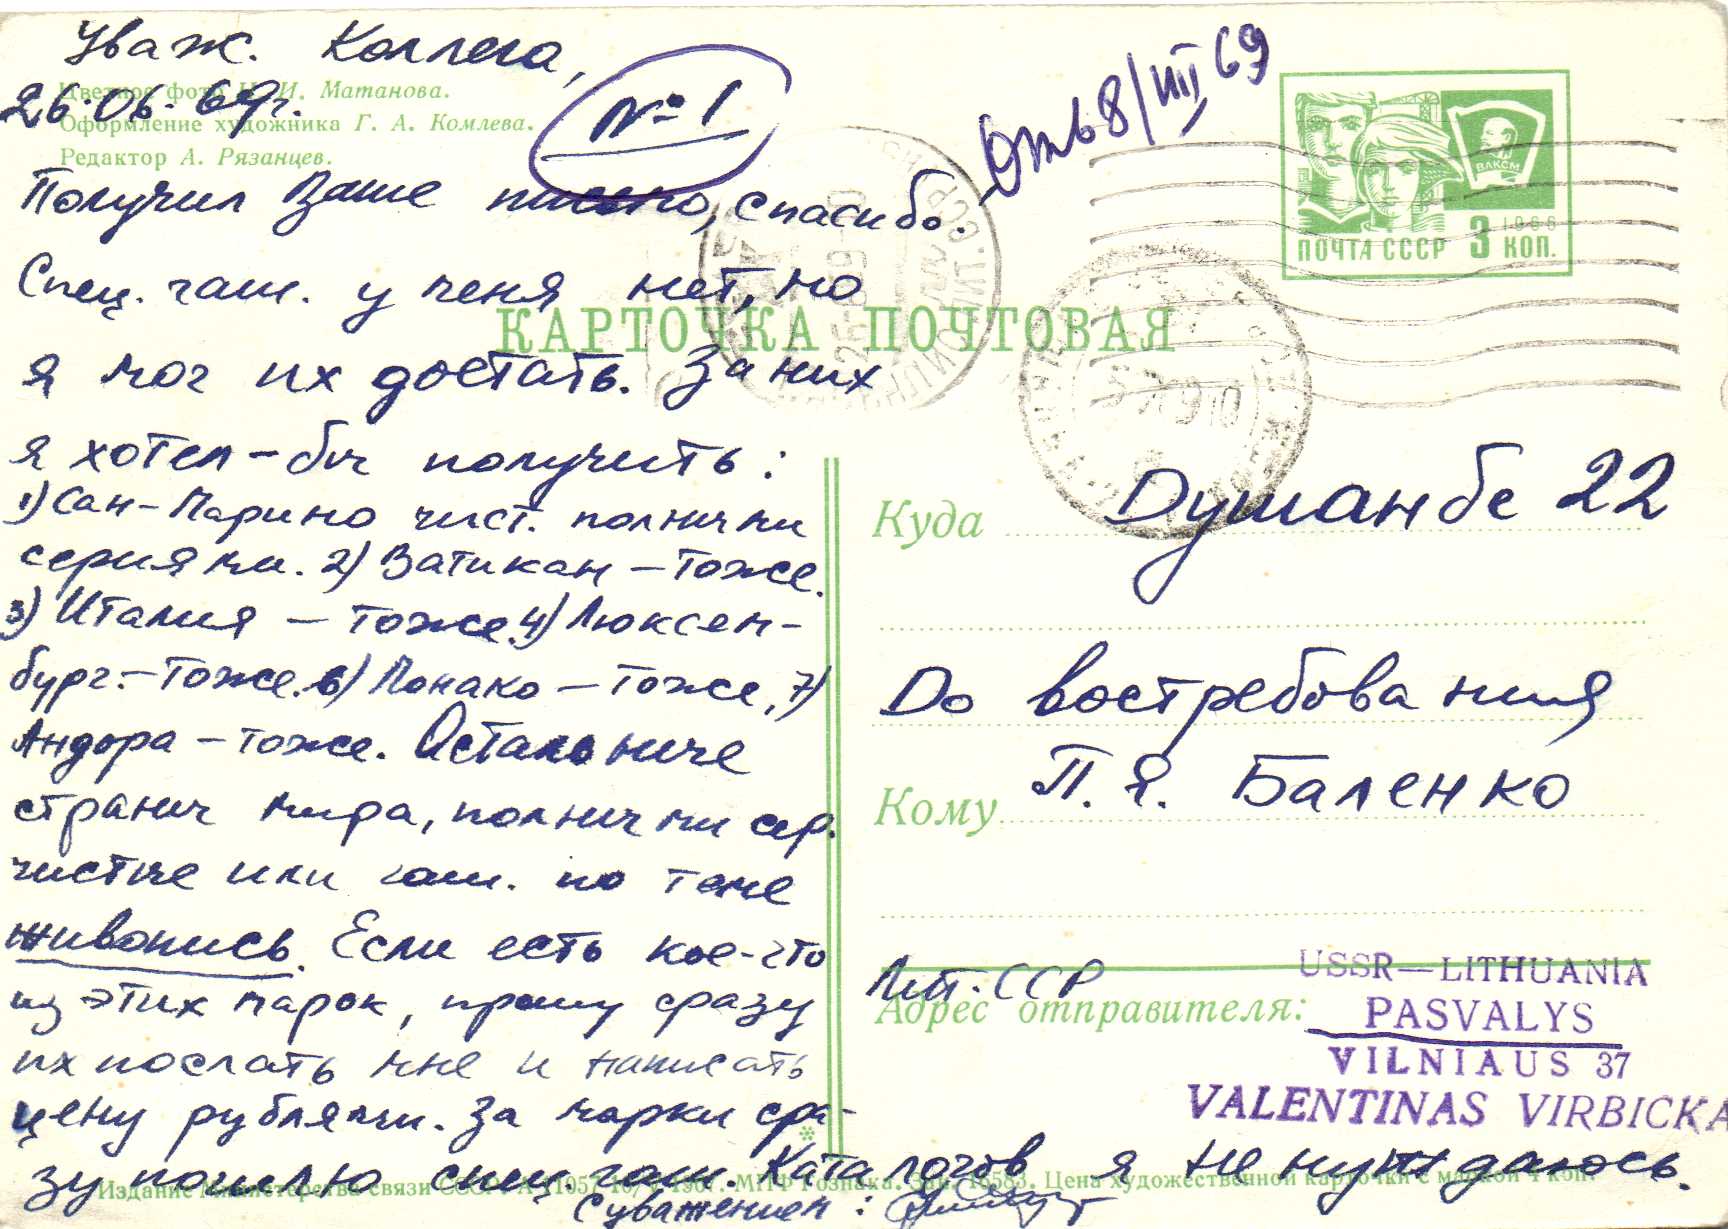 Уваж. Коллега,
26.06.69г.
Цветное фото И. Матанова.
Оформление художника Г. А. Комлева.
Редактор А. Рязанцев.
№1
Отв 8/VII 69
Получил Ваше письмо, спасибо.
Спец. гаш. у меня нет, но
я мог их достать. За них
я хотел-бы получить:
1) Сан-Марино чист. полными
сериями. 2) Ватикан - тоже.
3) Италия - тоже. 4) Люксем-
бург. - тоже. 6) Монако - тоже, 7)
Андора - тоже. Остальные
страны мира, полными сер.
чистые или гаш. по теме
живопись. Если есть кое-что
из этих марок, прошу сразу
их послать мне и написать
цену рублями. За марки сра-
зу пошлю спец. гаш. Каталогов я не нуждаюсь.
С уважением:
ВЛКСМ
1966
ПОЧТА СССР 3 КОП.
КАРТОЧКА ПОЧТОВАЯ
Куда Душанбе 22
До востребования
Кому П. Я. Баленко
Лит. ССР
Адрес отправителя:
USSR—LITHUANIA
PASVALYS
VILNIAUS 37
VALENTINAS VIRBICKA
Издание Министерства связи СССР. 1967. МПФ Гознака. Зак. 16583. Цена художественной карточки с маркой 4 коп.